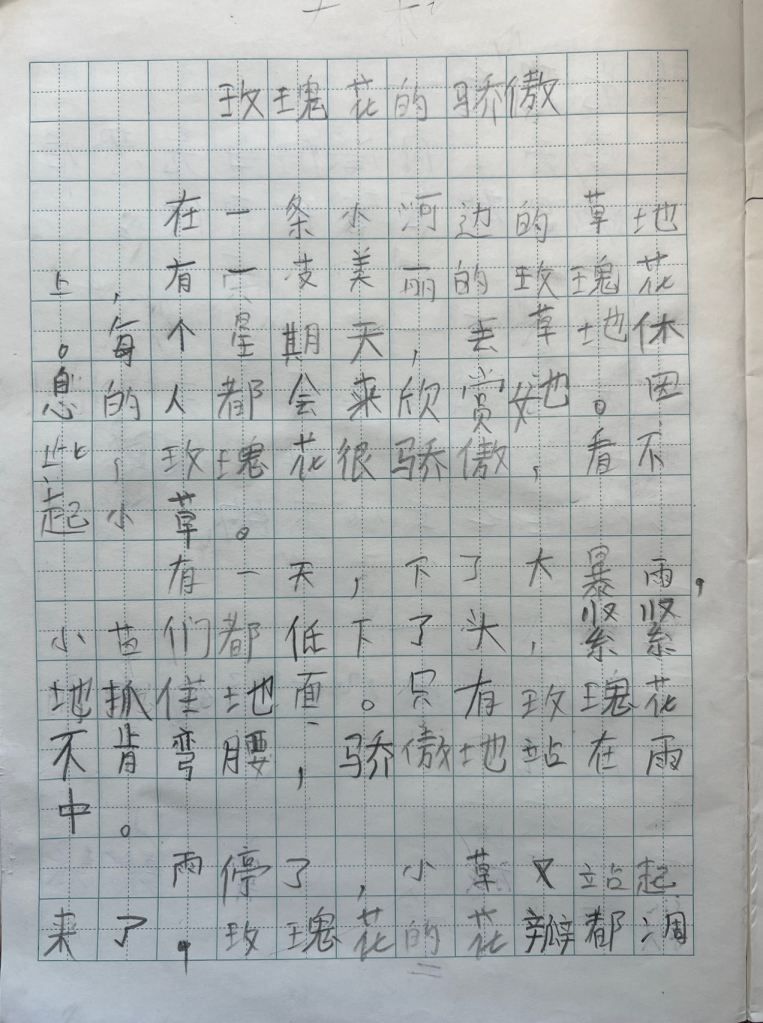 玫瑰花的骄傲
在一条小河边的草地
上，有一支美丽的玫瑰花
。每个星期天，去草地休
息的人都会来欣赏她。因
此，玫瑰花很骄傲，看不
起小草。
有一天，下了大暴雨，
小苗们都低下了头，紧紧
地抓住地面。只有玫瑰花
不肯弯腰，骄傲地站在雨
中。
雨停了，小草又站起
来了，玫瑰花的花瓣都凋